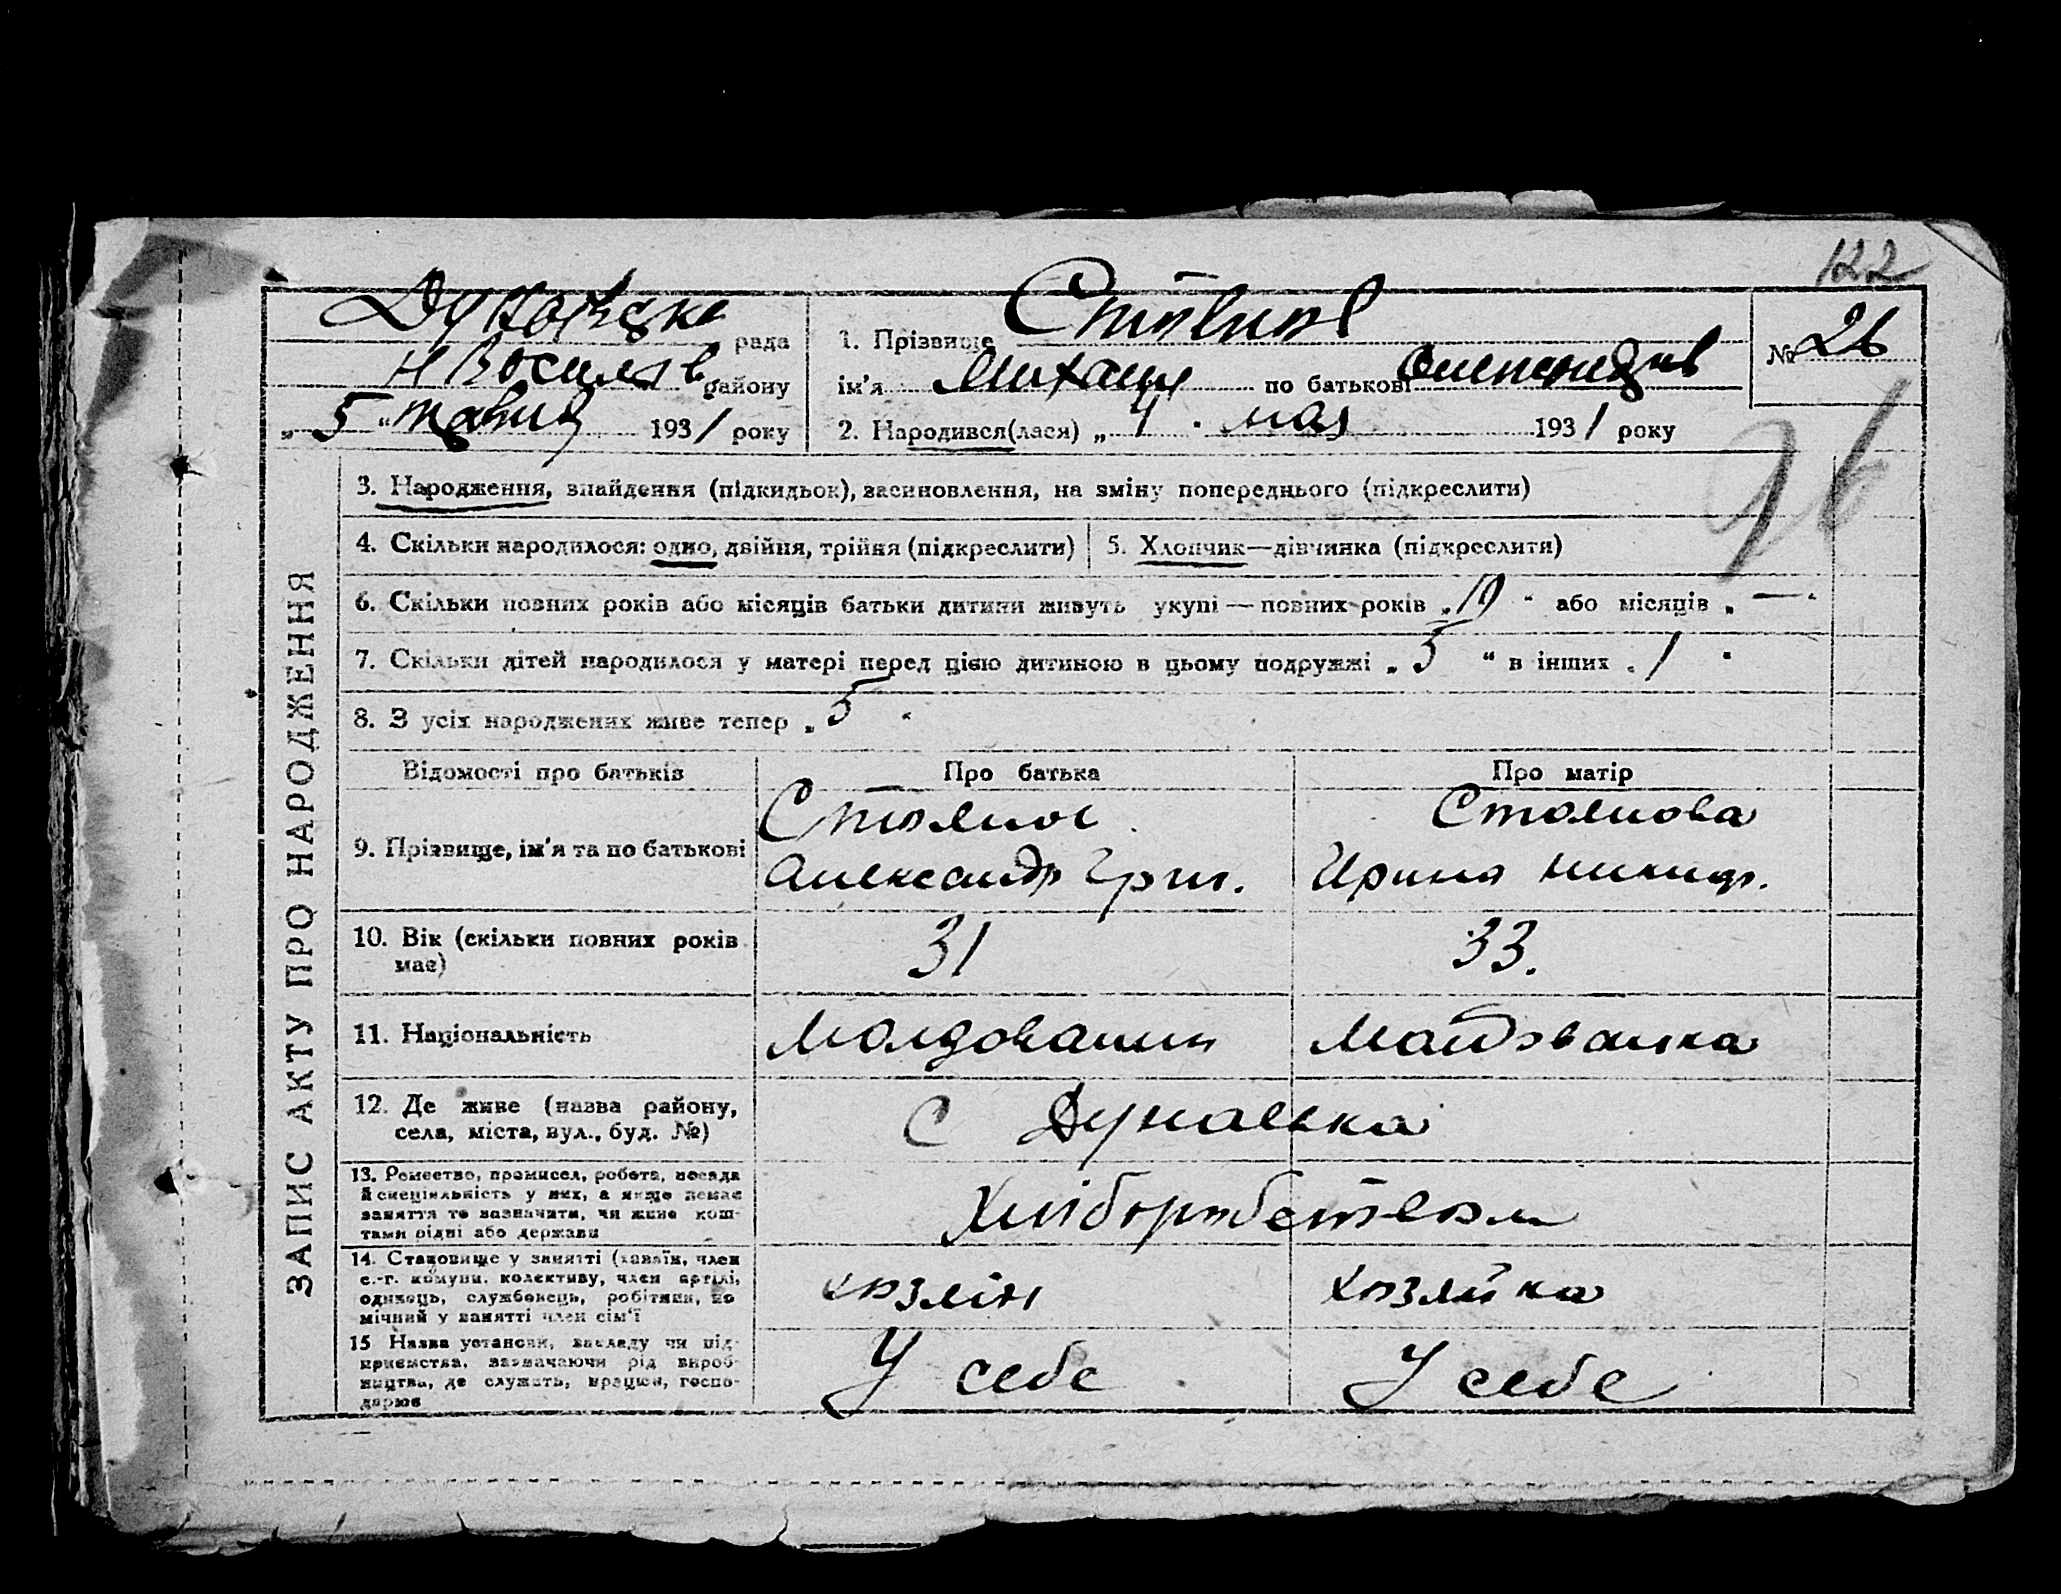 122
рада
району
„ 5 “ 1931 року
1. Прізвище
ім’я Михаил по батькові
2. Народився(лася) „ 4 . мая 1931 року
№ 26
26
ЗАПИС АКТУ ПРО НАРОДЖЕННЯ
3. Народження, знайдення (підкидьок), засиновлення, на зміну попереднього (підкреслити)
4. Скільки народилося: одно, двійня, трійня (підкреслити)
5. Хлопчик—дівчинка (підкреслити)
6. Скільки повних років або місяців батьки дитини живуть укупі — повних років „ 10 “ або місяців „ — “
7. Скільки дітей народилося у матері перед цією дитиною в цьому подружжі „ 5 “ в інших „ 1 “
8. З усіх народжених живе тепер „ 5 “
Відомості про батьків Про батька Про матір
9. Прізвище, ім’я та по батькові
Стоянов
Александр Григ.
Стоянова
Ирина Никиф.
10. Вік (скільки повних років має)
31 33.
11. Національність Молдованин Молдованка
12. Де живе (назва району,
села, міста, вул., буд. №)
С Дунаевка
13. Ремество, промисел, робота, посада
й спеціяльність у них, а якщо немає
заняття то зазначити, чи живе кош-
тами рідні або держави
Хліборобством
14. Становище у занятті (хазяїн, член
с.-г. комуни, колективу, член артілі,
одинець, службовець, робітник, по
мічний у занятті член сім’ї
хозяін хозяйка
15 Назва установи, закладу чи під-
приємства, зазначаючи рід вироб-
ництва, де служить, працює, госпо-
дарює
У себе У себе